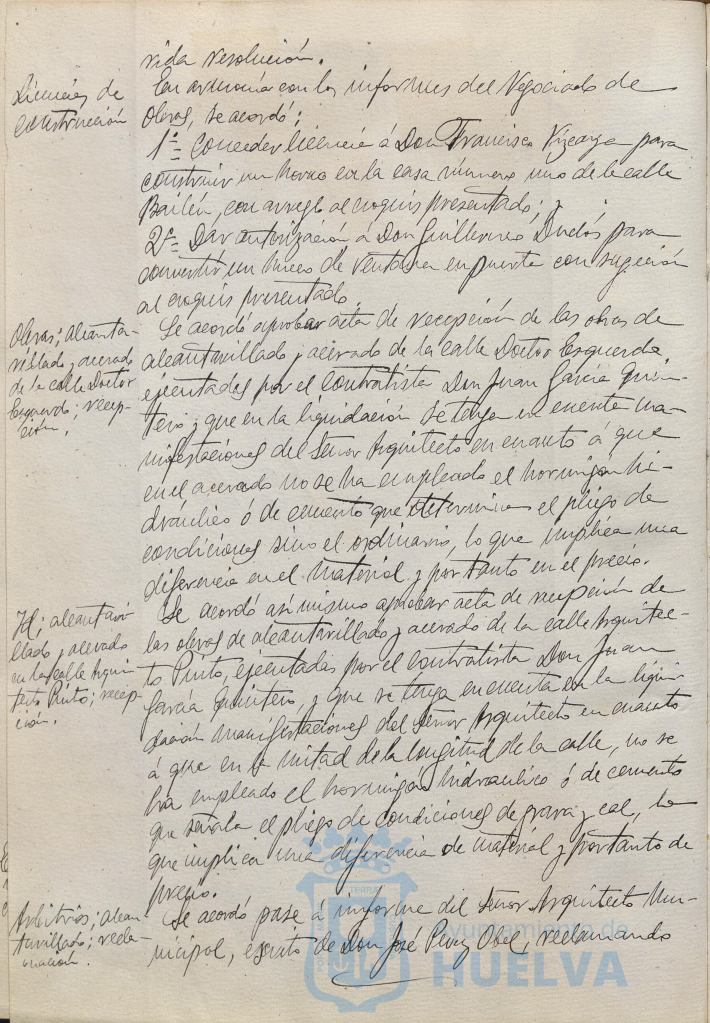 vida resolución.
Licencias de
construcción
En armonía con los informes del Negociado de
Obras, se acordó:
1º= Conceder licencia á Don Francisco Vizcaya para
construir un horno en la casa número uno de la calle
Bailén, con arreglo al croquis presentado; y
2º= Dar autorización á Don Guillermo Duclós para
convertir un hueco de ventana en puerta con sugeción
al croquis presentado.
Obras; alcanta-
rillado y acerado
de la calle Doctor
Esquerdo; recep-
ción.
Se acordó aprobar acta de recepción de las obras de
alcantarillado y acerado de la calle Doctor Esquerdo,
ejecutadas por el contratista Don Juan García Quin-
tero y que en la liquidación se tenga en cuenta ma-
nifestaciones del Señor Arquitecto en cuanto á que
en el acerado no se ha empleado el hormigón hi-
dráulico ó de cemento que determina el pliego de
condiciones sino el ordinario, lo que implica una
diferencia en el material y por tanto en el precio.
Id; alcantari
llado y acerado
en la calle Arqui
tecto Pinto; recep-
ción.
Se acordó asímismo aprobar acta de recepción de
las obras de alcantarillado y acerado de la calle Arquitec-
to Pinto, ejecutadas por el contratista Don Juan
García Quintero, y que se tenga en cuenta en la liqui
dación manifestaciones del Señor Arquitecto en cuanto
á que en la mitad de la longitud de la calle, no se
ha empleado el hormigón hidraulico ó de cemento
que señala el pliego de condiciones de grava y cal, lo
que implica una diferencia de material y por tanto de
precio.
Arbitrios; alcan
tarillado; recla-
mación.
Se acordó pase á informe del Señor Arquitecto Mu-
nicipal, escrito de Don José Perez Obel, reclamando
Ayuntamiento de
HUELVA